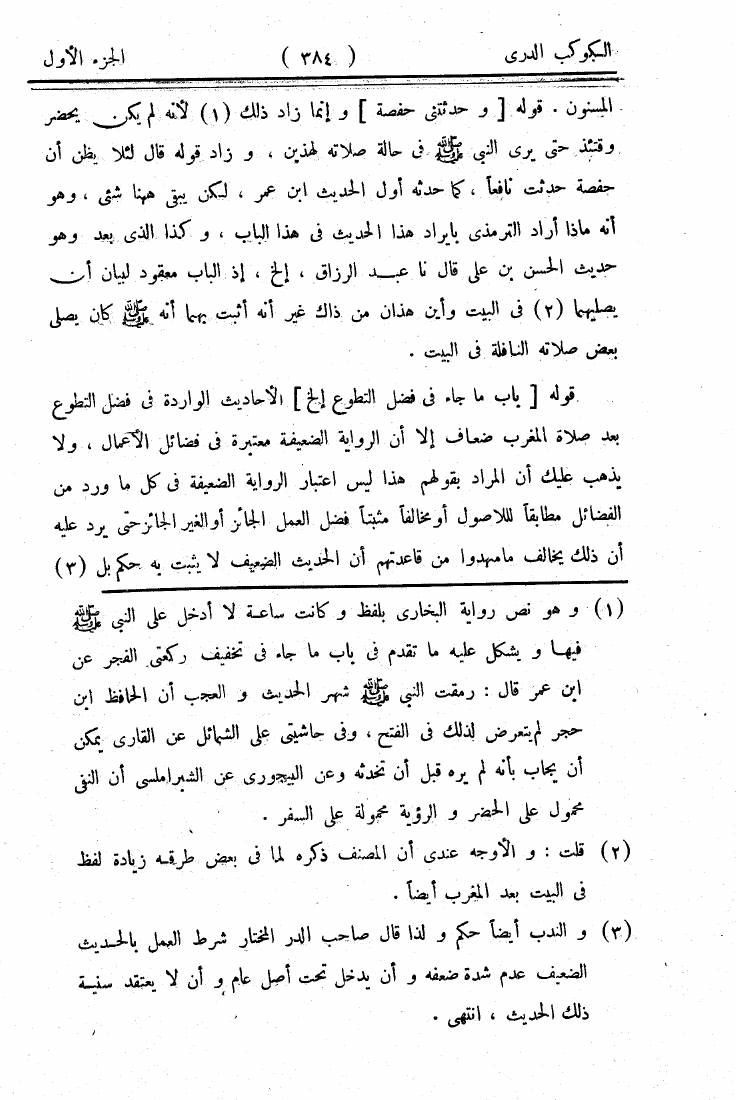 الكوكب الدرى ( ٣٨٤ ) الجزء الأول
المسنون . قوله [ و حدثتنى حفصة ] و إنما زاد ذلك (١) لأنه لم يكن يحضر
وقتئذ حتى يرى النبي ﷺ فى حالة صلاته لهذين ، و زاد قوله قال لئلا يظن أن
حفصة حدثت نافعاً ، كما حدثه أول الحديث ابن عمر ، لكن يبقى ههنا شئى ، وهو
أنه ماذا أراد الترمذى بايراد هذا الحديث فى هذا الباب ، و كذا الذى بعد وهو
حديث الحسن بن على قال نا عبد الرزاق ، إلخ ، إذ الباب معقود لبيان أن
يصليهما (٢) فى البيت وأين هذان من ذاك غير أنه أثبت بهما أنه ﷺ كان يصلى
بعض صلاته النافلة فى البيت .
قوله [ باب ما جاء فى فضل التطوع إلخ ] الأحاديث الواردة فى فضل التطوع
بعد صلاة المغرب ضعاف إلا أن الرواية الضعيفة معتبرة فى فضائل الأعمال ، ولا
يذهب عليك أن المراد بقولهم هذا ليس اعتبار الرواية الضعيفة فى كل ما ورد من
الفضائل مطابقاً للاصول أو مخالفاً مثبتاً فضل العمل الجائز أو الغير الجائز حتى يرد عليه
أن ذلك يخالف مامهدوا من قاعدتهم أن الحديث الضعيف لا يثبت به حكم بل (٣)
(١) و هو نص رواية البخارى بلفظ و كانت ساعة لا أدخل على النبي ﷺ
فيها و يشكل عليه ما تقدم فى باب ما جاء فى تخفيف ركعتى الفجر عن
ابن عمر قال : رمقت النبي ﷺ شهر الحديث و العجب أن الحافظ ابن
حجر لم يتعرض لذلك فى الفتح ، وفى حاشيتى على الشمائل عن القارى يمكن
أن يجاب بأنه لم يره قبل أن تحدثه وعن البيجورى عن الشبراملسى أن النفى
محمول على الحضر و الرؤية محمولة على السفر .
(٢) قلت : و الأوجه عندى أن المصنف ذكره لما فى بعض طرقه زيادة لفظ
فى البيت بعد المغرب أيضاً .
(٣) و الندب أيضاً حكم و لذا قال صاحب الدر المختار شرط العمل بالحديث
الضعيف عدم شدة ضعفه و أن يدخل تحت أصل عام و أن لا يعتقد سنية
ذلك الحديث ، انتهى .